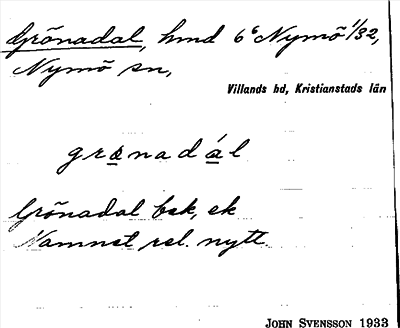 Grönadal, hmd 6ᵉ Nymö 1/32,
Nymö sn,
Villands hd, Kristianstads län
grönadál
Grönadal bsk, ek
Namnet rel. nytt.
JOHN SVENSSON 1933